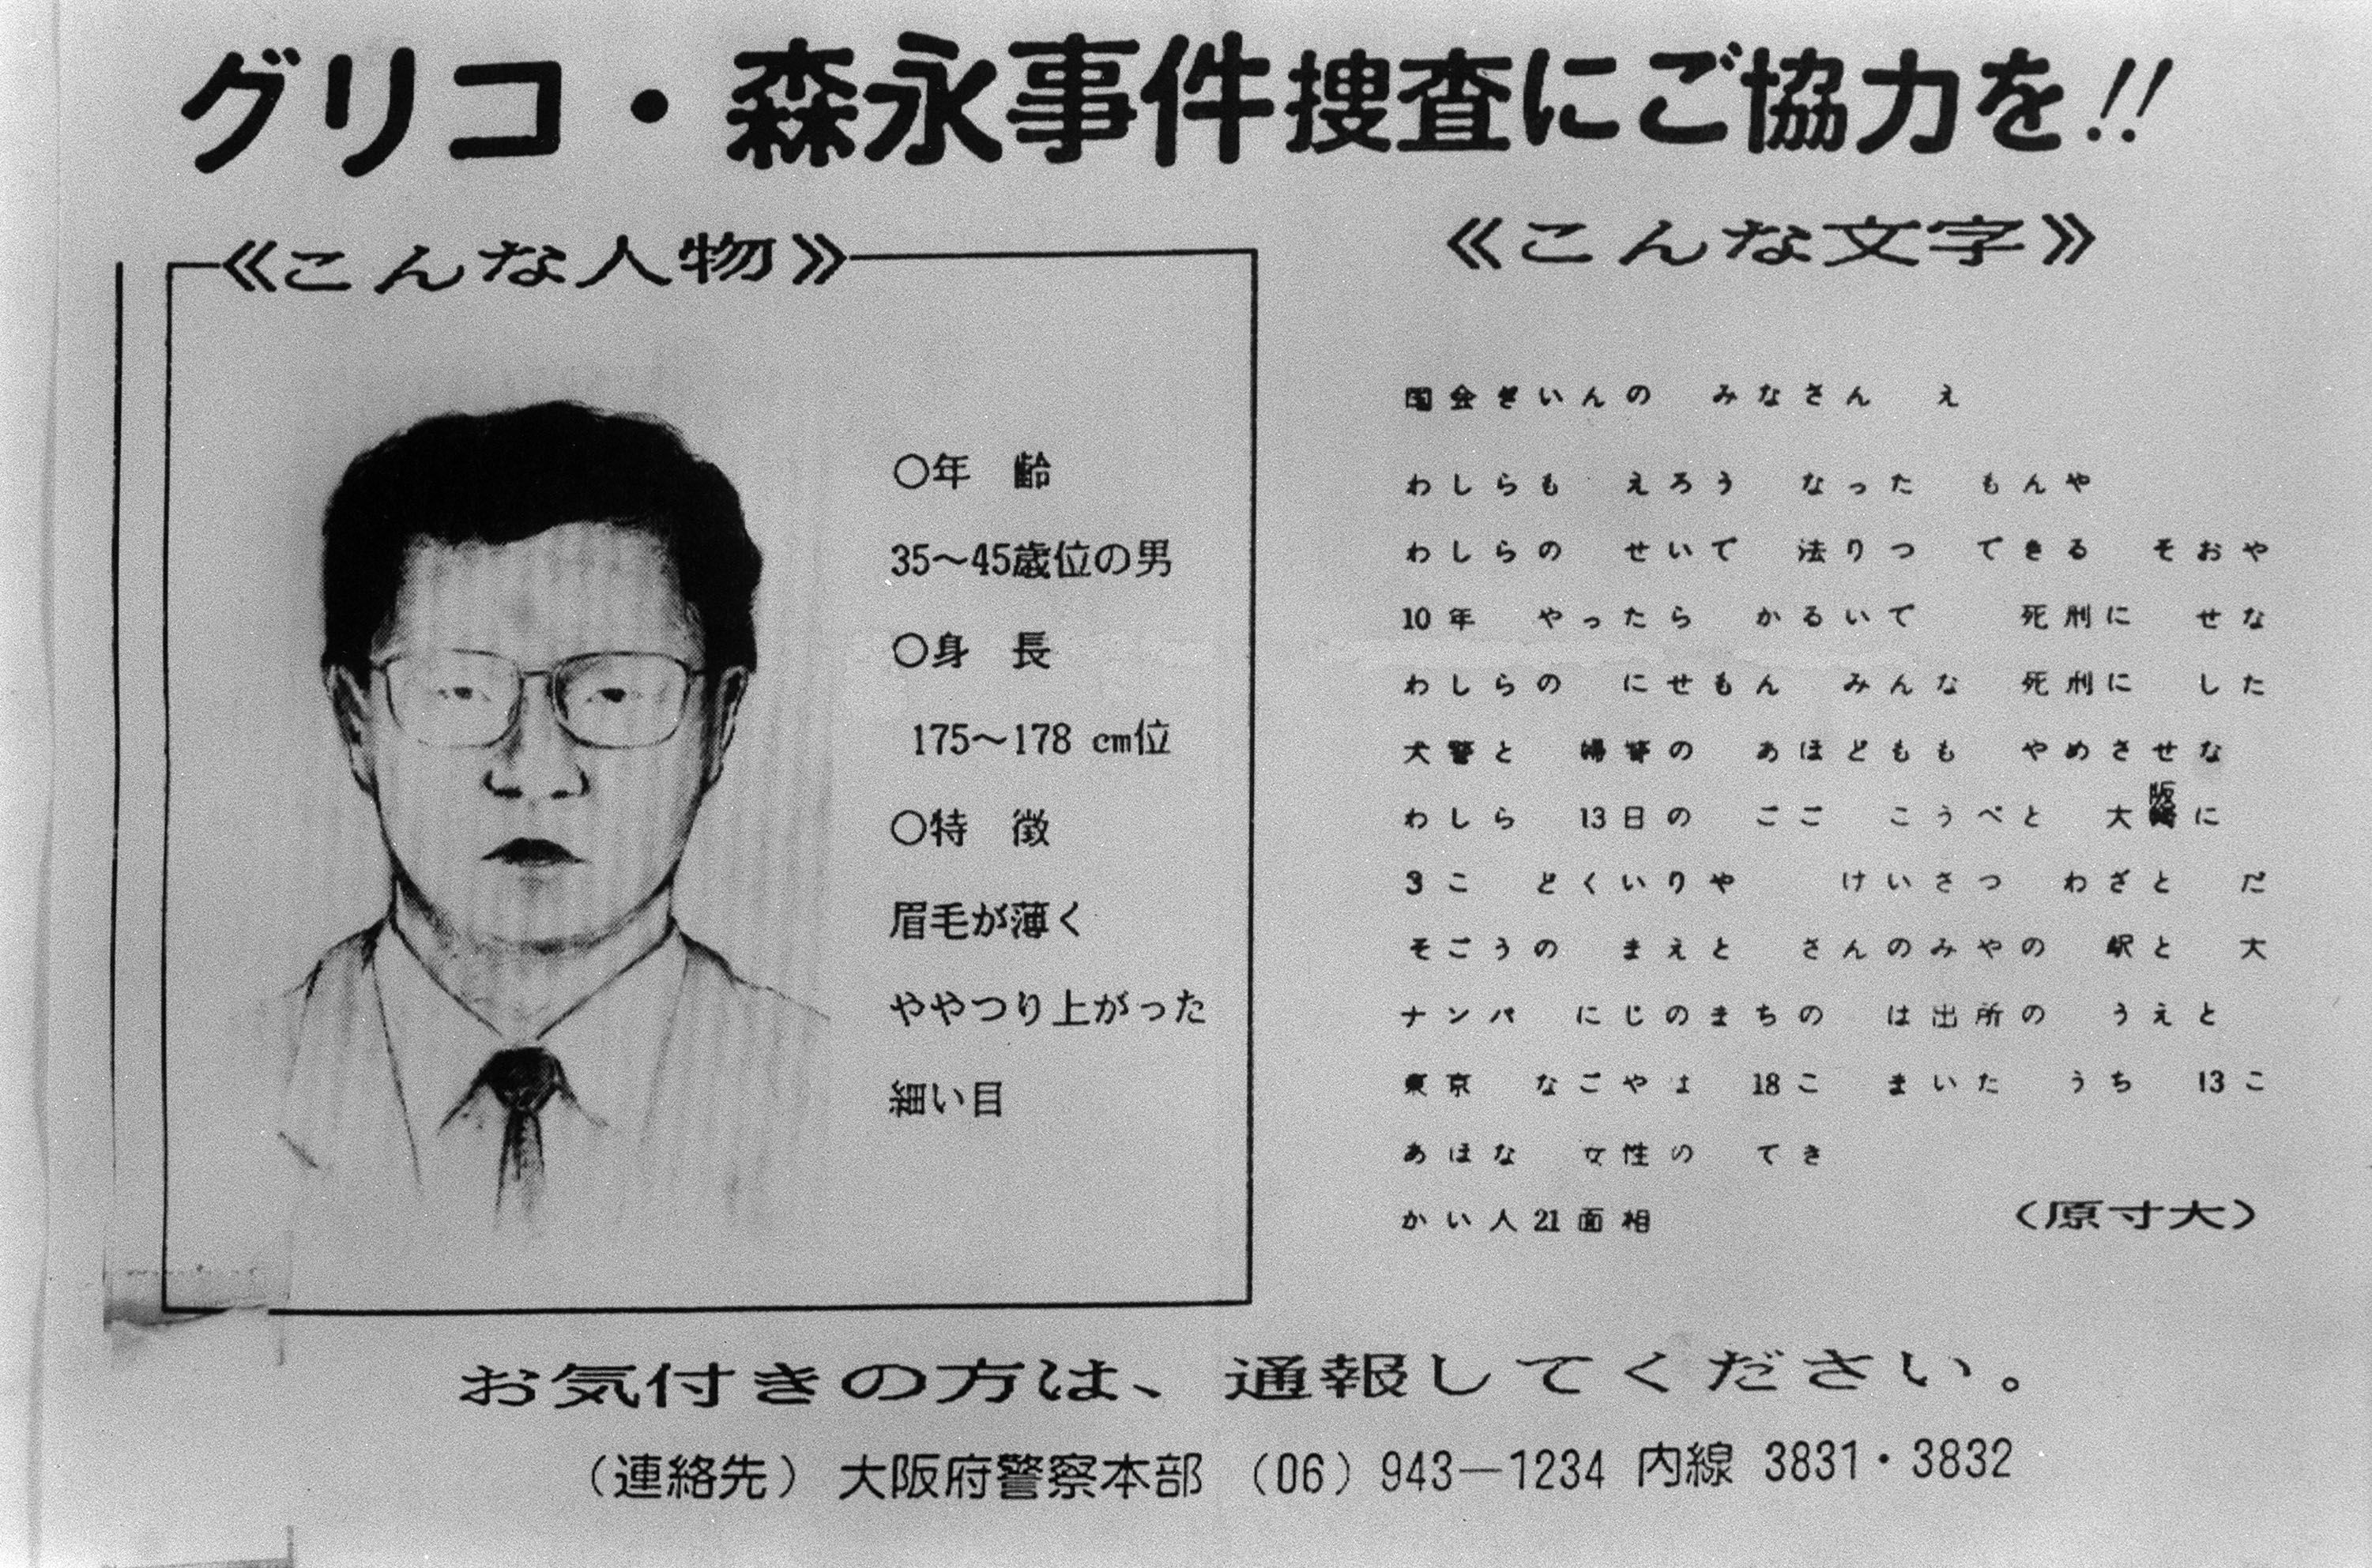 グリコ・森永事件捜査にご協力を!!
《こんな人物》
○年　齢
35～45歳位の男
○身　長
175～178 cm位
○特　徴
眉毛が薄く
ややつり上がった
細い目
《こんな文字》
国会ぎいんの　みなさん　え
わしらも　えろう　なった　もんや
わしらの　せいで　法りつ　できる　そおや
10年　やったら　かるいで　　死刑に　せな
わしらの　にせもん　みんな　死刑に　した
犬警と　　のあほどもも　やめさせな
わしら　13日の　ごご　こうべと　大阪に
3こ　どくいりや　　けいさつ　わざと　だ
そごうの　まえと　さんのみやの　駅と　大
ナンパ　にじのまちの　は出所の　うえと
東京　なごやは　18こ　まいた　うち　13こ
あほな　女性の　てき
かい人21面相
（原寸大）
お気付きの方は、通報してください。
（連絡先）大阪府警察本部（06）943―1234 内線 3831・3832